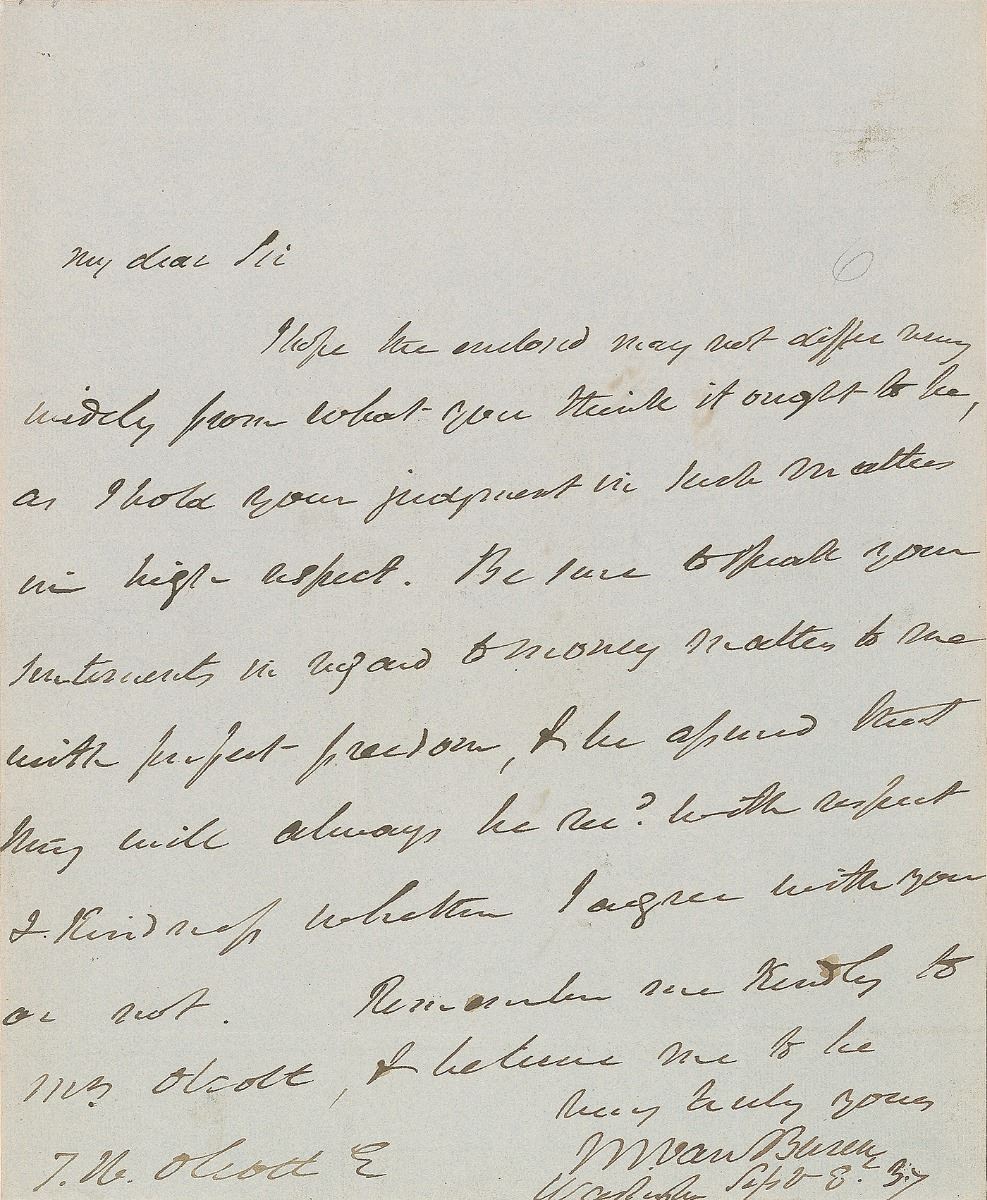 My dear Sir
I hope the enclosed may not differ very
widely from what you think it ought to be,
as I hold your judgment in such matters
in high respect. Be sure to speak your
sentiments in regard to money matters to me
with perfect freedom, & be assured that
they will always be recd. with respect
& Kindness whether I agree with you
or not. Remember me Kindly to
Mrs Olcott, & believe me to be
very truly yours
M. Van Buren
T. W. Olcott E
Washington Sept 8th 37